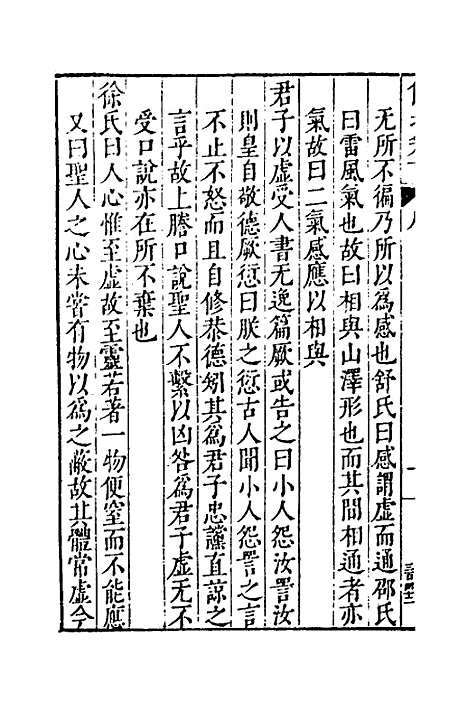 无所不徧乃所以爲感也舒氏曰感謂虛而通邵氏
曰雷風氣也故曰相與山澤形也而其間相通者亦
氣故曰二氣感應以相與
君子以虛受人書无逸篇厥或告之曰小人怨汝詈汝
則皇自敬德厥愆曰朕之愆古人聞小人怨詈之言
不止不怒而且自修恭德矧其爲君子忠讜直諒之
言乎故上滕口說聖人不繫以凶咎爲君子虛无不
受口說亦在所不棄也
徐氏曰人心惟至虛故至靈若著一物便窒而不能應
又曰聖人之心未嘗有物以爲之蔽故其體常虛今